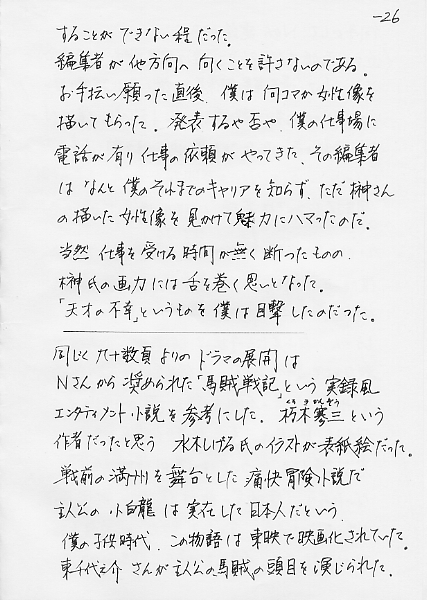 -26
することができない程だった。
編集者が他方向へ向くことを許さないのである。
お手伝い願った直後、僕は何コマか女性像を
描いてもらった。発表するや否や、僕の仕事場に
電話が有り仕事の依頼がやってきた。その編集者
はなんと僕のそれまでのキャリアを知らず、ただ榊さん
の描いた女性像を見かけて魅力にハマったのだ。
当然仕事を受ける時間が無く断ったものの、
榊氏の画力には舌を巻く思いとなった。
「天才の不幸」というものを僕は目撃したのだった。
同じく九十数頁よりのドラマの展開は
Nさんから奨められた「馬賊戦記」という実録風
エンタティメント小説を参考にした。朽木寒三という
作者だったと思う 水木しげる氏のイラストが表紙絵だった。
戦前の満州を舞台とした痛快冒険小説で
主人公の小白龍は実在した日本人だという。
僕の子供時代、この物語は東映で映画化されていた。
東千代之介さんが主人公の馬賊の頭目を演じられた。